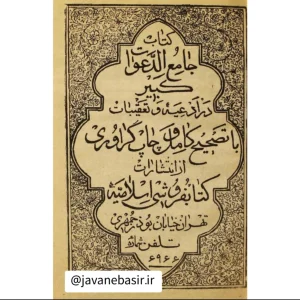 کتاب
جامع الدعوات
کبیر
در ادعیه و تعقیبات
با تصحیح کامل و چاپ گراوری
از انتشارات
کتابفروشی اسلامیه
تهران خیابان بوذرجمهری
تلفن شماره
۶۹۶۶
@javanebasir.ir